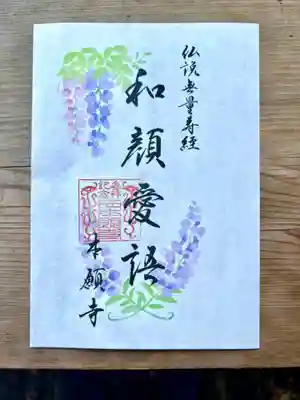 仏説無量寿経
和顔愛語
本願寺